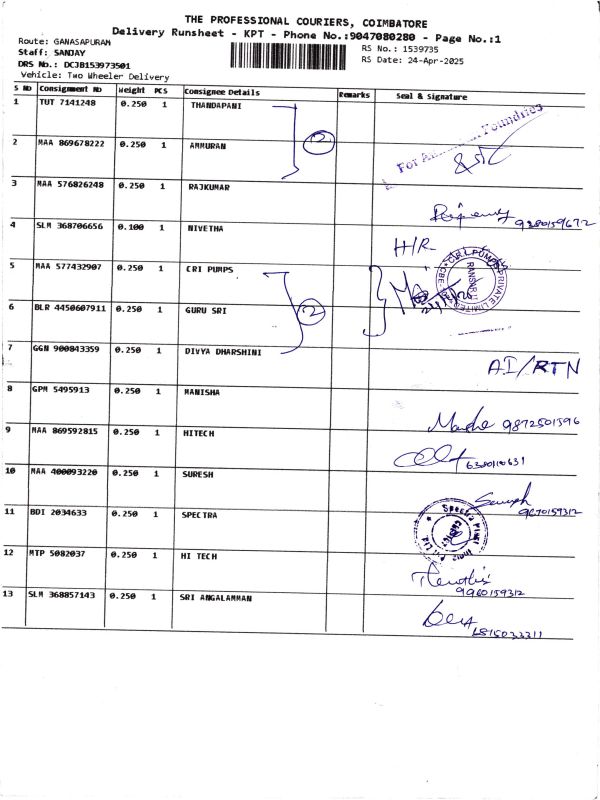 THE PROFESSIONAL COURIERS, COIMBATORE
Delivery Runsheet - KPT - Phone No.:9047080280 - Page No.:1
Route: GANASAPURAM
Staff: SANJAY
DRS No.: DCJB153973501
Vehicle: Two Wheeler Delivery
RS No.: 1539735
RS Date: 24-Apr-2025
S No Consignment No Weight PCS Consignee Details Remarks Seal & Signature
1 TUT 7141248 0.250 1 THANDAPANI
2
For Foundries
2 MAA 869678222 0.250 1 AMMURAN
3 MAA 576826248 0.250 1 RAJKUMAR
9380159672
4 SLM 368706656 0.100 1 NIVETHA
H/R
5 MAA 577432907 0.250 1 CRI PUMPS
C.R.I. PUMPS PRIVATE LIMITED
CBE
6 BLR 4450607911 0.250 1 GURU SRI
2
7 GGN 900843359 0.250 1 DIVYA DHARSHINI
AI/RTN
8 GPM 5495913 0.250 1 MANISHA
9872501596
9 MAA 869592815 0.250 1 HITECH
6380110631
10 MAA 400093220 0.250 1 SURESH
9870159312
11 BDI 2034633 0.250 1 SPECTRA
Spectra
12 MTP 5082037 0.250 1 HI TECH
9960159312
13 SLM 368857143 0.250 1 SRI ANGALAMMAN
6815033311